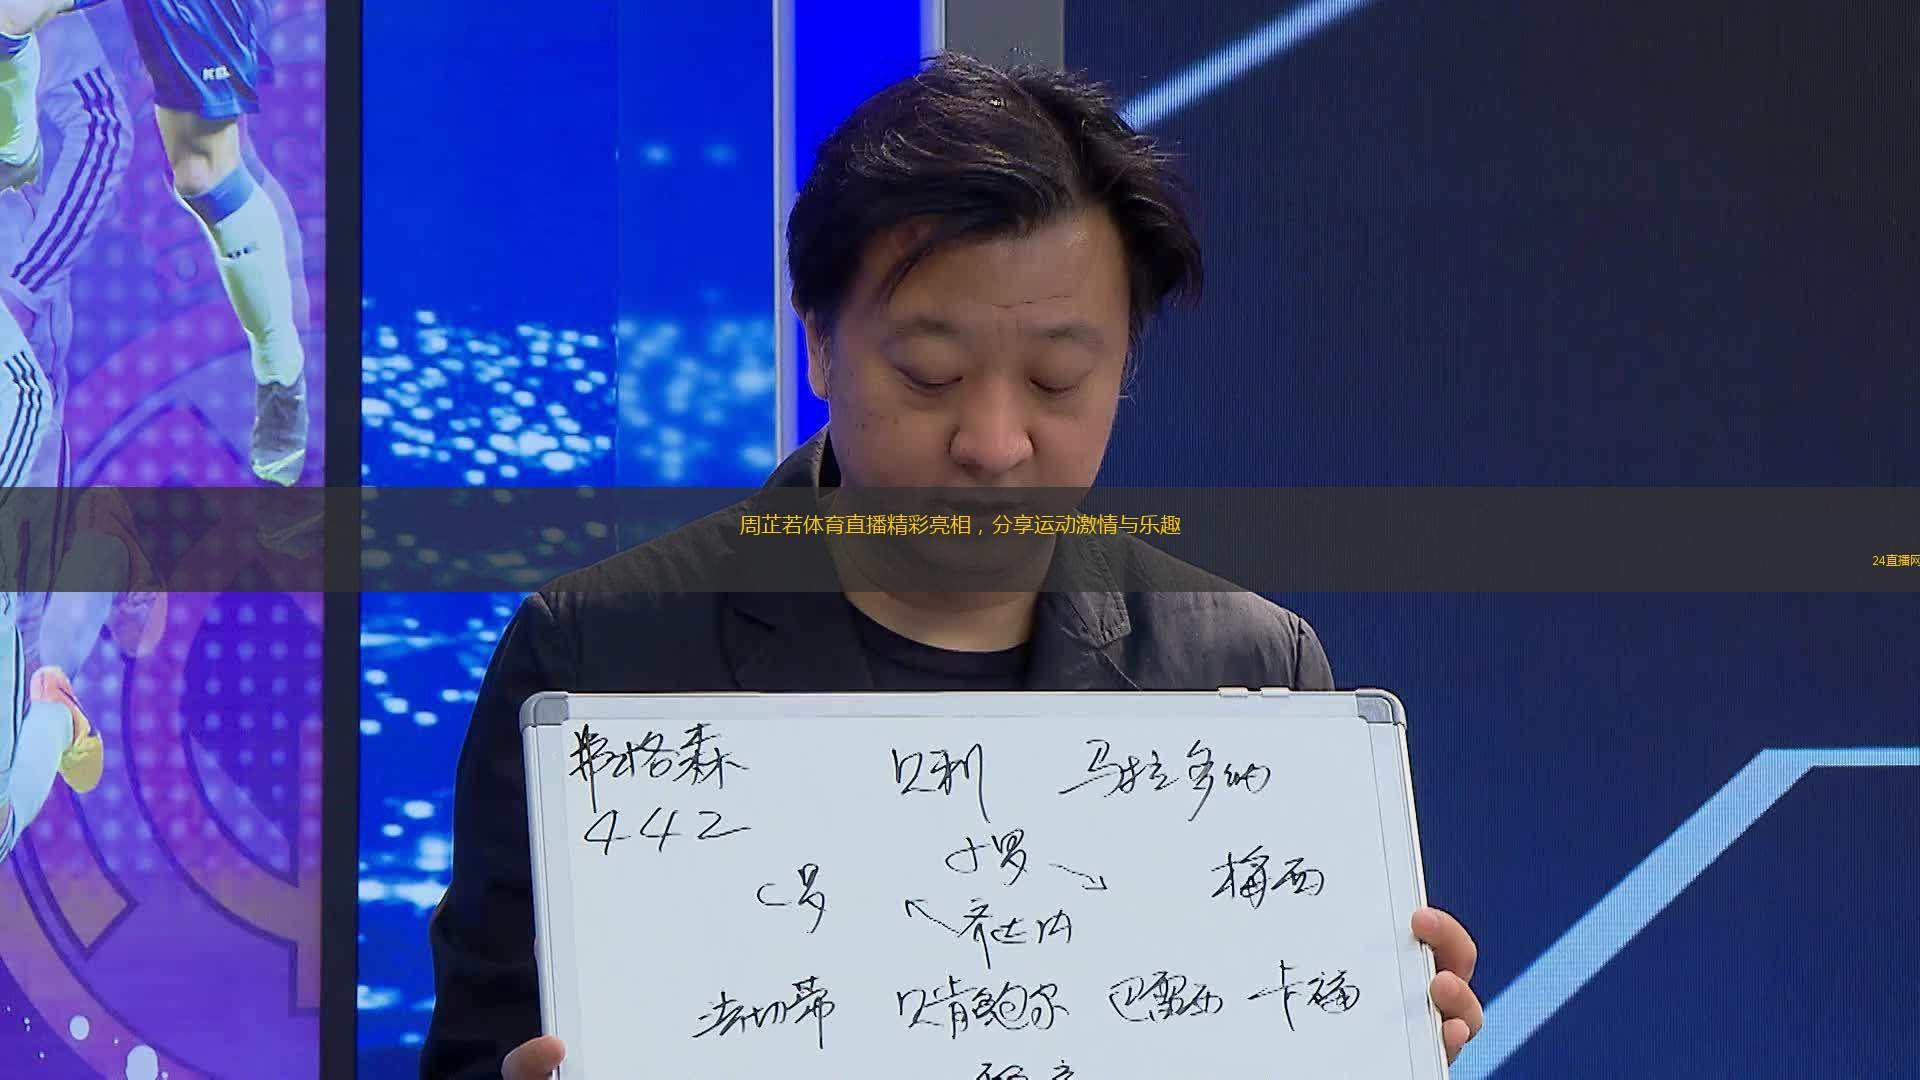 周芷若体育直播精彩亮相，分享运动激情与乐趣
24直播网
弗格森 贝利 马拉多纳
442
小罗
C罗 梅西
齐达内
法切蒂 贝肯鲍尔 巴雷西 卡福